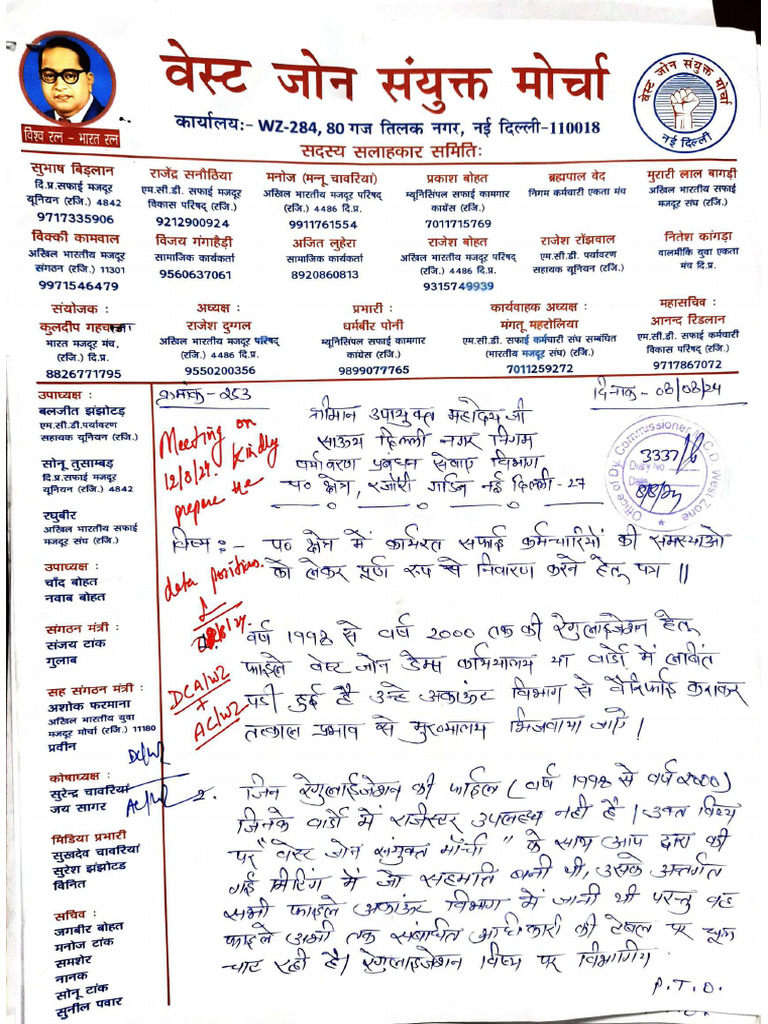 विश्व रत्न - भारत रत्न
वेस्ट जोन संयुक्त मोर्चा
कार्यालय:- WZ-284, 80 गज तिलक नगर, नई दिल्ली-110018
सदस्य सलाहकार समितिः
वेस्ट जोन संयुक्त मोर्चा
नई दिल्ली
सुभाष बिड़लान
दि.प्र.सफाई मजदूर
यूनियन (रजि.) 4842
9717335906
राजेंद्र सनौठिया
एम.सी.डी. सफाई मजदूर
विकास परिषद् (रजि.)
9212900924
मनोज (मन्नू चावरियां)
अखिल भारतीय मजदूर परिषद्
(रजि.) 4486 दि.प्र.
9911761554
प्रकाश बोहत
म्यूनिसिपल सफाई कामगार
कांग्रेस (रजि.)
7011715769
ब्रह्मपाल वेद
निगम कर्मचारी एकता मंच
मुरारी लाल बागड़ी
अखिल भारतीय सफाई
मजदूर संघ (रजि.)
विक्की कामवाल
अखिल भारतीय मजदूर
संगठन (रजि.) 11301
9971546479
विजय गंगाहेड़ी
सामाजिक कार्यकर्ता
9560637061
अजित लुहेरा
सामाजिक कार्यकर्ता
8920860813
राजेश बोहत
अखिल भारतीय मजदूर परिषद्
(रजि.) 4486 दि.प्र.
9315749939
राजेश रौंझवाल
एम.सी.डी. पर्यावरण
सहायक यूनियन (रजि.)
नितेश कांगड़ा
वाल्मीकि युवा एकता
मंच दि.प्र.
संयोजक :
कुलदीप गहचाजा
भारत मजदूर मंच,
(रजि.) दि.प्र.
8826771795
अध्यक्ष :
राजेश दुग्गल
अखिल भारतीय मजदूर परिषद्
(रजि.) 4486 दि.प्र.
9550200356
प्रभारी :
धर्मबीर पोनी
म्यूनिसिपल सफाई कामगार
कांग्रेस (रजि.)
9899077765
कार्यवाहक अध्यक्ष :
मंगतू महरोलिया
एम.सी.डी. सफाई कर्मचारी संघ सम्बंधित
(भारतीय मजदूर संघ) (रजि.)
7011259272
महासचिव :
आनन्द रिडलान
एम.सी.डी. सफाई कर्मचारी
विकास परिषद् (रजि.)
9717867072
उपाध्यक्ष :
बलजीत झंझोटड़
एम.सी.डी.पर्यावरण
सहायक यूनियन (रजि.)
सोनू तुसाम्बड़
दि.प्र.सफाई मजदूर
यूनियन (रजि.) 4842
रघुबीर
अखिल भारतीय सफाई
मजदूर संघ (रजि.)
उपाध्यक्ष :
चाँद बोहत
नवाब बोहत
संगठन मंत्री :
संजय टांक
गुलाब
सह संगठन मंत्री :
अशोक फरमाना
अखिल भारतीय युवा
मजदूर मोर्चा (रजि.) 11180
प्रवीन
कोषाध्यक्ष :
सुरेन्द्र चावरियां
जय सागर
मिडिया प्रभारी
सुखदेव चावरियां
सुरेश झंझोटड
विनित
सचिव :
जगबीर बोहत
मनोज टांक
समशेर
नानक
सोनू टांक
सुनील पवार
क्रमांक - 253
दिनांक - 08/08/24
श्रीमान उपायुक्त महोदय जी
साऊथ दिल्ली नगर निगम
पर्यावरण प्रबंधन सेवाएं विभाग
प० क्षेत्र, रजौरी गार्डन नई दिल्ली - 27
Office of Dy. Commissioner M.C.D. West Zone
Diary No. 3337
Date 8/8/24
Meeting on
12/8/24. Kindly
prepare the
data position.
DCA/WZ
+
AC/WZ
DC/WZ
AC/WZ
विषय :- प० क्षेत्र में कार्यरत सफाई कर्मचारियों की समस्याओं
को लेकर पूर्ण रूप से निवारण करने हेतु पत्र ||
वर्ष 1998 से वर्ष 2000 तक की रेगुलाइजेशन हेतु
फाइले वेस्ट जोन डेम्स कार्यालय या वार्डो में लंबित
पडी हुई है उन्हे अकाउंट विभाग से वैरिफाई कराकर
तत्काल प्रभाव से मुख्यालय भिजवाया जाऐ |
2. जिन रेगुलाईजेशन की फाईल (वर्ष 1998 से वर्ष 2000)
जिनके वार्डो में राजीस्टर उपलब्ध नही है | उक्त विषय
पर "वेस्ट जोन संयुक्त मोर्चा" के साथ आप द्वारा की
गई मिटिंग में जो सहमति बनी थी, उसके अन्तर्गत
सभी फाइले अकाऊंट विभाग में जानी थी परन्तु वह
फाइले अभी तक संबंधित अधिकारी की टेबल पर धूल
चाट रही है। रेगुलाइजेशन विषय पर विभागीय
P.T.O.